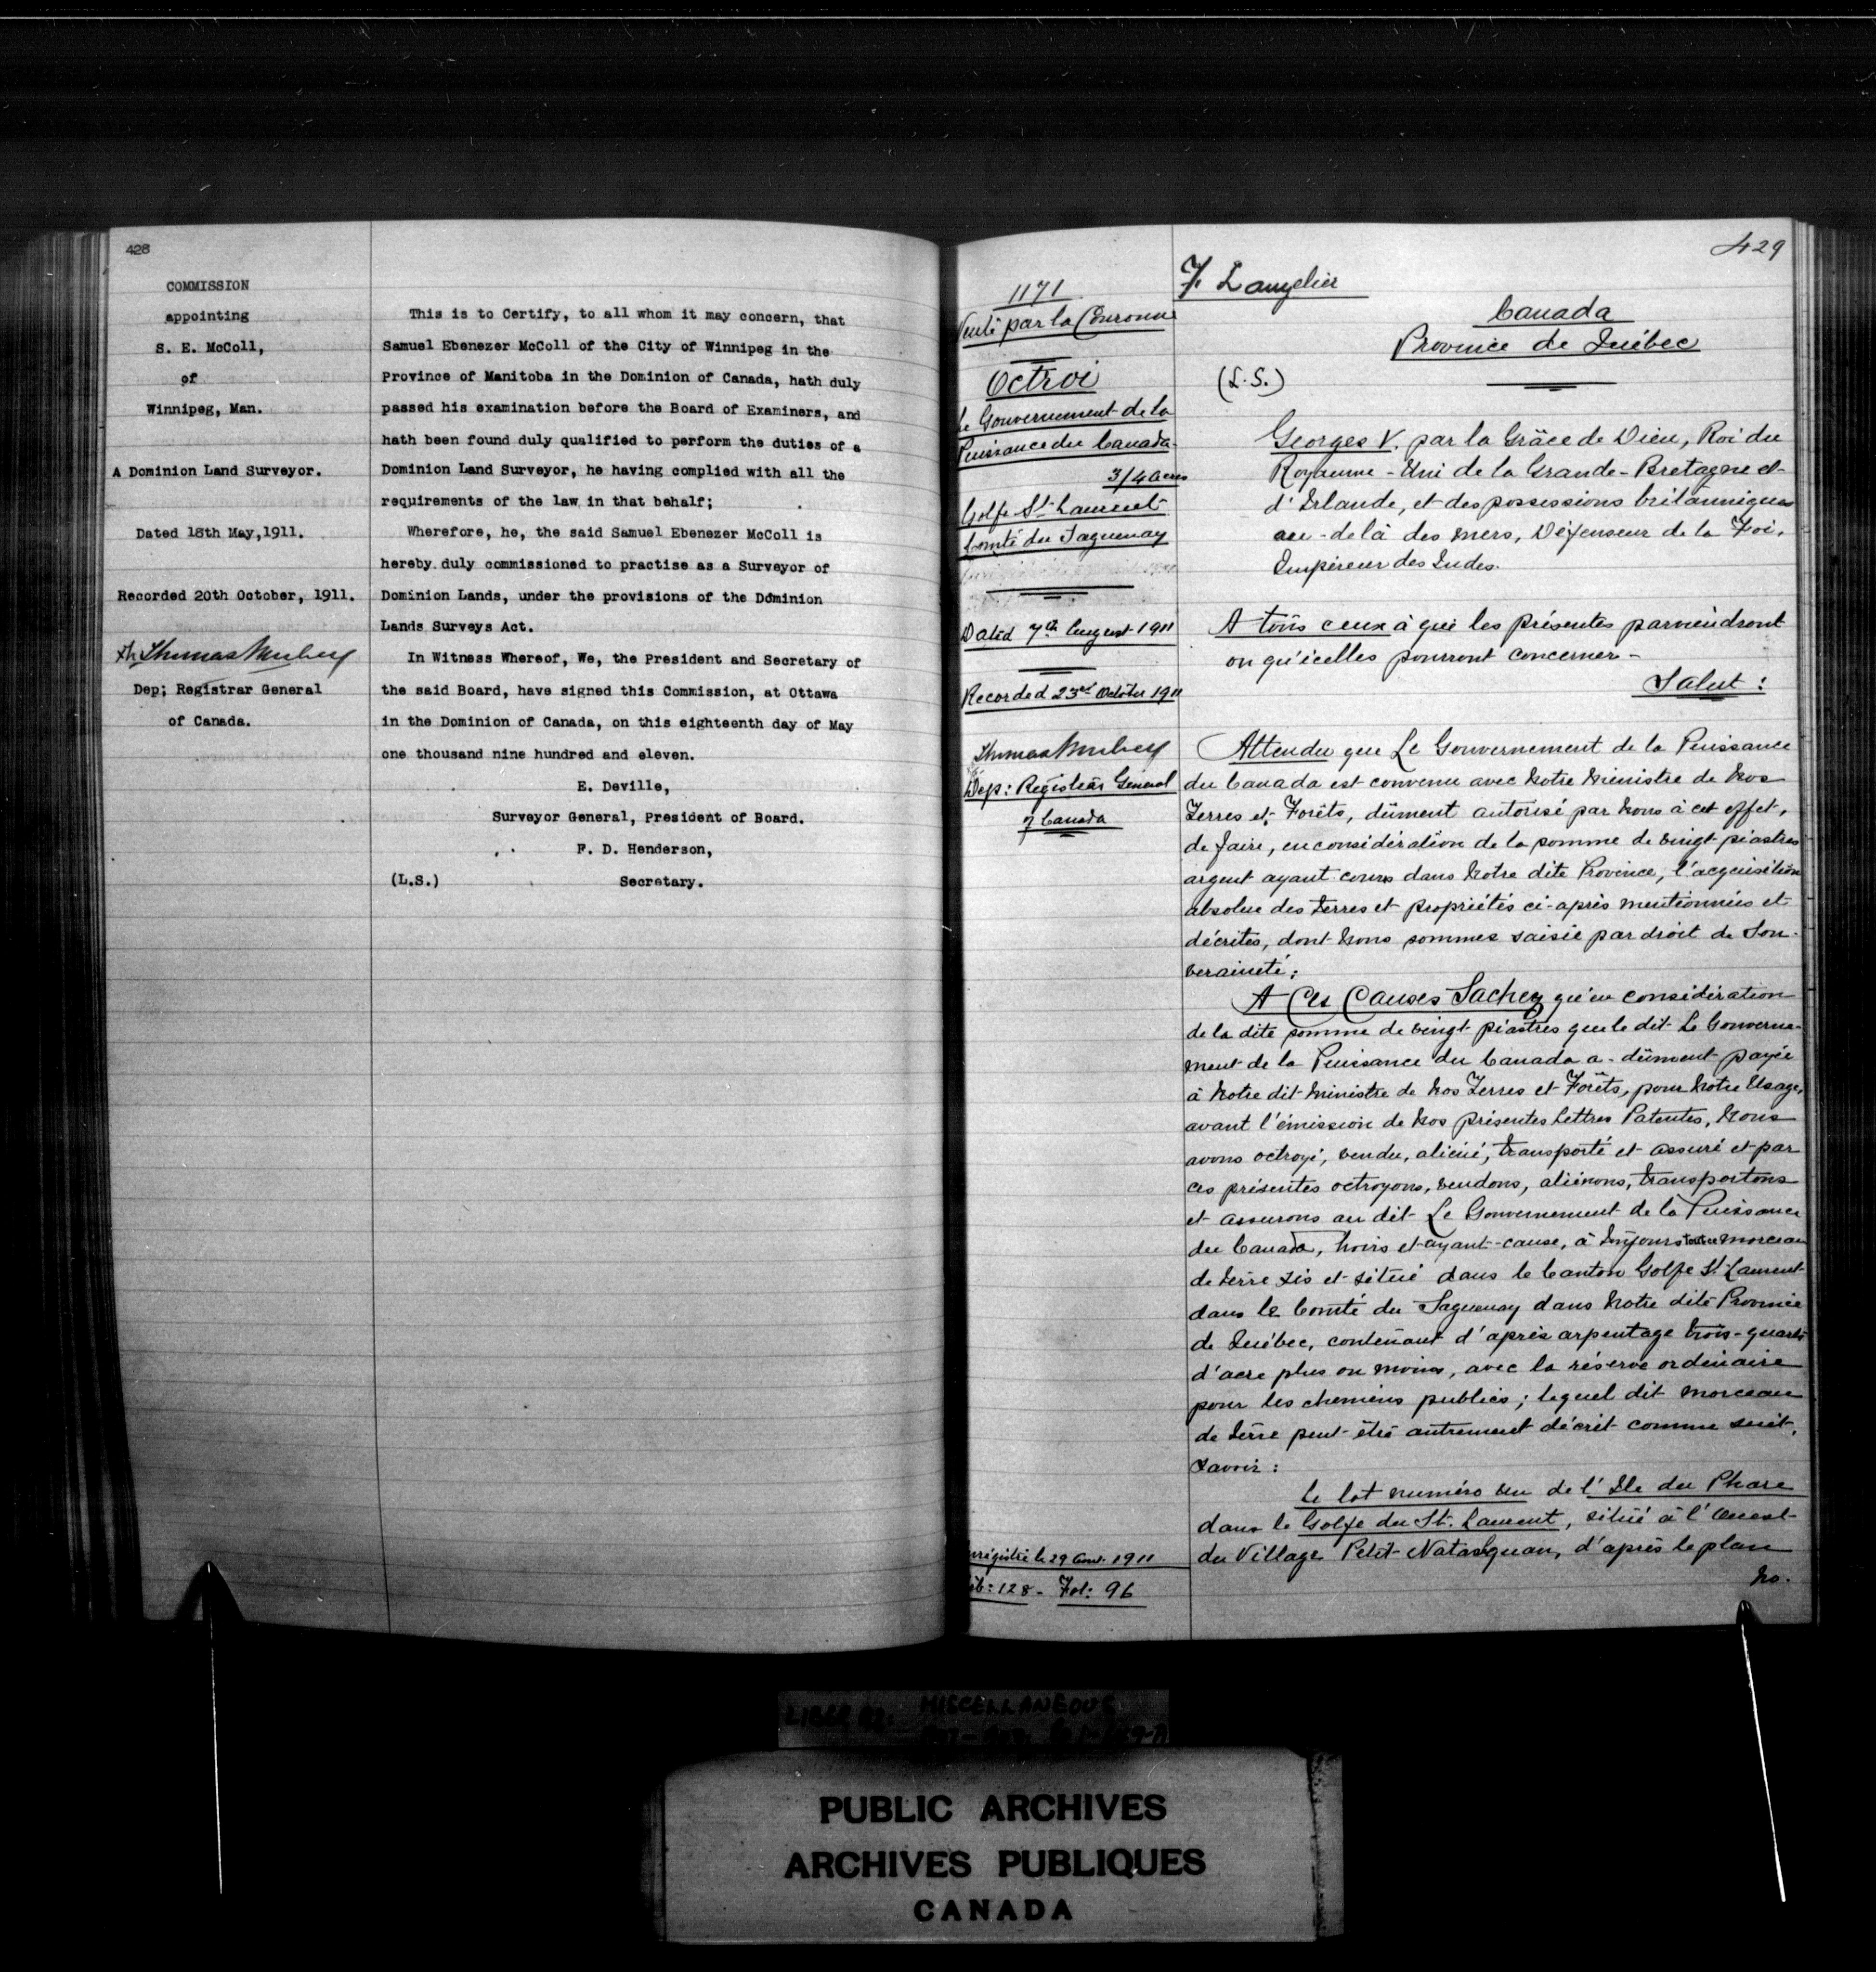 428
COMMISSION
appointing
S. E. McColl,
of
Winnipeg, Man.
A Dominion Land Surveyor.
Dated 18th May,1911.
Recorded 20th October, 1911.
Thomas Mulvey
Dep; Registrar General
of Canada.
This is to Certify, to all whom it may concern, that
Samuel Ebenezer McColl of the City of Winnipeg in the
Province of Manitoba in the Dominion of Canada, hath duly
passed his examination before the Board of Examiners, and
hath been found duly qualified to perform the duties of a
Dominion Land Surveyor, he having complied with all the
requirements of the law in that behalf;
Wherefore, he, the said Samuel Ebenezer McColl is
hereby duly commissioned to practise as a Surveyor of
Dominion Lands, under the provisions of the Dominion
Lands Surveys Act.
In Witness Whereof, We, the President and Secretary of
the said Board, have signed this Commission, at Ottawa
in the Dominion of Canada, on this eighteenth day of May
one thousand nine hundred and eleven.
E. Deville,
Surveyor General, President of Board.
F. D. Henderson,
(L.S.) Secretary.
429
1171
Vente par la Couronne
Octroi
Le Gouvernement de la
Puissance du Canada
3/4 acres
Golfe St. Laurent
Comté du Saguenay
Dated 7th August 1911
Recorded 23rd October 1911
Thomas Mulvey
Dep: Registrar General
of Canada
Enrégistré le 29 Aout 1911
Lib: 128 - Fol: 96
F. Langelier
Canada
Province de Québec
(L.S.)
Georges V. par la Grâce de Dieu, Roi du
Royaume-Uni de la Grande-Bretagne et
d'Irlande, et des possessions britanniques
au-delà des mers, Défenseur de la Foi,
Empereur des Indes.
A tous ceux à qui les présentes parviendront
ou qu'icelles pourront concerner -
Salut :
Attendu que Le Gouvernement de la Puissance
du Canada est convenu avec Notre Ministre de Nos
Terres et Forêts, dûment autorisé par Nous à cet effet,
de faire, en considération de la somme de vingt piastres
argent ayant cours dans Notre dite Province, l'acquisition
absolue des terres et propriétés ci-après mentionnées et
décrites, dont Nous sommes saisie par droit de Sou-
veraineté;
A Ces Causes Sachez qu'en considération
de la dite somme de vingt piastres que le dit Le Gouverne-
ment de la Puissance du Canada a dûment payée
à Notre dit Ministre de Nos Terres et Forêts, pour Notre Usage,
avant l'émission de Nos présentes Lettres Patentes, Nous
avons octroyé, vendu, aliéné, transporté et assuré et par
ces présentes octroyons, vendons, aliénons, transportons
et assurons au dit Le Gouvernement de la Puissance
du Canada, hoirs et ayant-cause, à toujours tout ce morceau
de terre sis et situé dans le Canton Golfe St. Laurent
dans le Comté du Saguenay dans Notre dite Province
de Québec, contenant d'après arpentage trois-quarts
d'acre plus ou moins, avec la réserve ordinaire
pour les chemins publics; lequel dit morceau
de terre peut être autrement décrit comme suit,
savoir :
Le lot numéro un de l'Ile du Phare
dans le Golfe du St. Laurent, situé à l'Ouest
du Village Petit-Natasquan, d'après le plan
No.
LIBER MISCELLANEOUS
PUBLIC ARCHIVES
ARCHIVES PUBLIQUES
CANADA